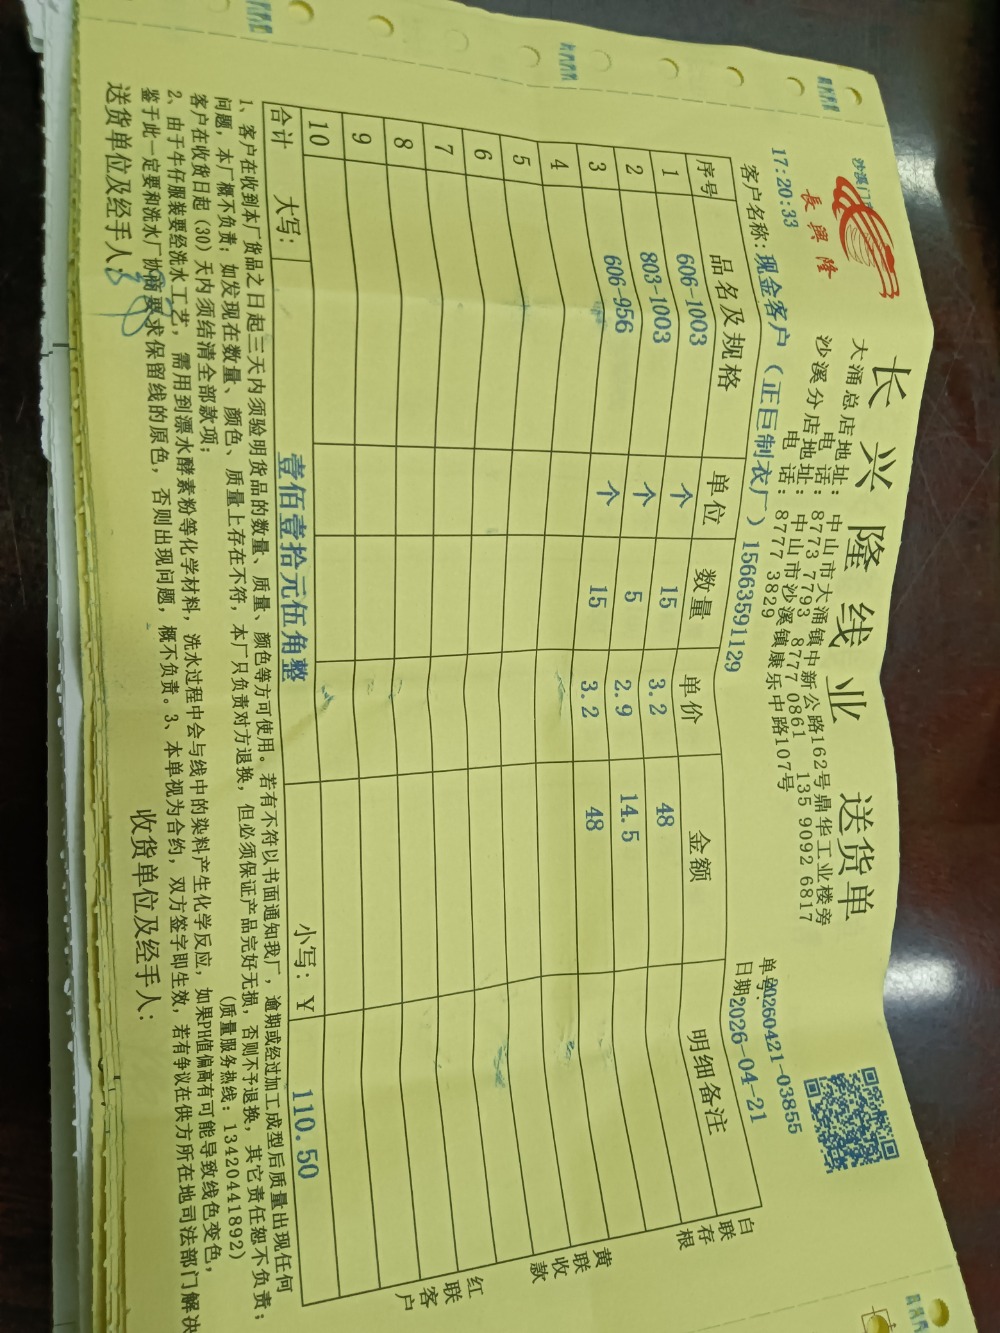 長興隆
长兴隆线业 送货单
大涌总店地址：中山市大涌镇中新公路162号鼎华工业楼旁
电 话：8773 7793 8777 0861 135 9092 6817
沙溪分店地址：中山市沙溪镇康乐中路107号
电 话：8777 3829
沙溪门
17:20:33
单号：20260421-03855
客户名称：现金客户（正巨制衣厂）15663591129
日期2026-04-21
序号 品名及规格 单位 数量 单价 金额 明细备注
1 606-1003 个 15 3.2 48
2 803-1003 个 5 2.9 14.5
3 606-956 个 15 3.2 48
4
5
6
7
8
9
10
合计 大写：壹佰壹拾元伍角整 小写：￥ 110.50
白联存根
黄联收款
红联客户
1、客户在收到本厂货品之日起三天内须验明货品的数量、质量、颜色等方可使用。若有不符以书面通知我厂，逾期或经过加工成型后质量出现任何
问题，本厂概不负责；如发现在数量、颜色、质量上存在不符，本厂只负责对方退换，但必须保证产品完好无损，否则不予退换，其它责任恕不负责；
客户在收货日起（30）天内须结清全部款项； （质量服务热线：13420441892）
2、由于牛仔服装要经洗水工艺，需用到漂水酵素粉等化学材料，洗水过程中会与线中的染料产生化学反应，如果PH值偏高有可能导致线色变色，
鉴于此一定要和洗水厂协商要求保留线的原色，否则出现问题，概不负责。3、本单视为合约，双方签字即生效，若有争议在供方所在地司法部门解决
送货单位及经手人： 收货单位及经手人：